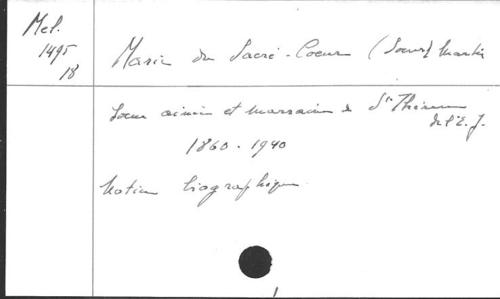 Mel.
1495
18
Marie du Sacré-Coeur (Soeur) Martin
Soeur ainée et marraine de Ste Thérèse
de l'E. J.
1860-1940
Notice biographique